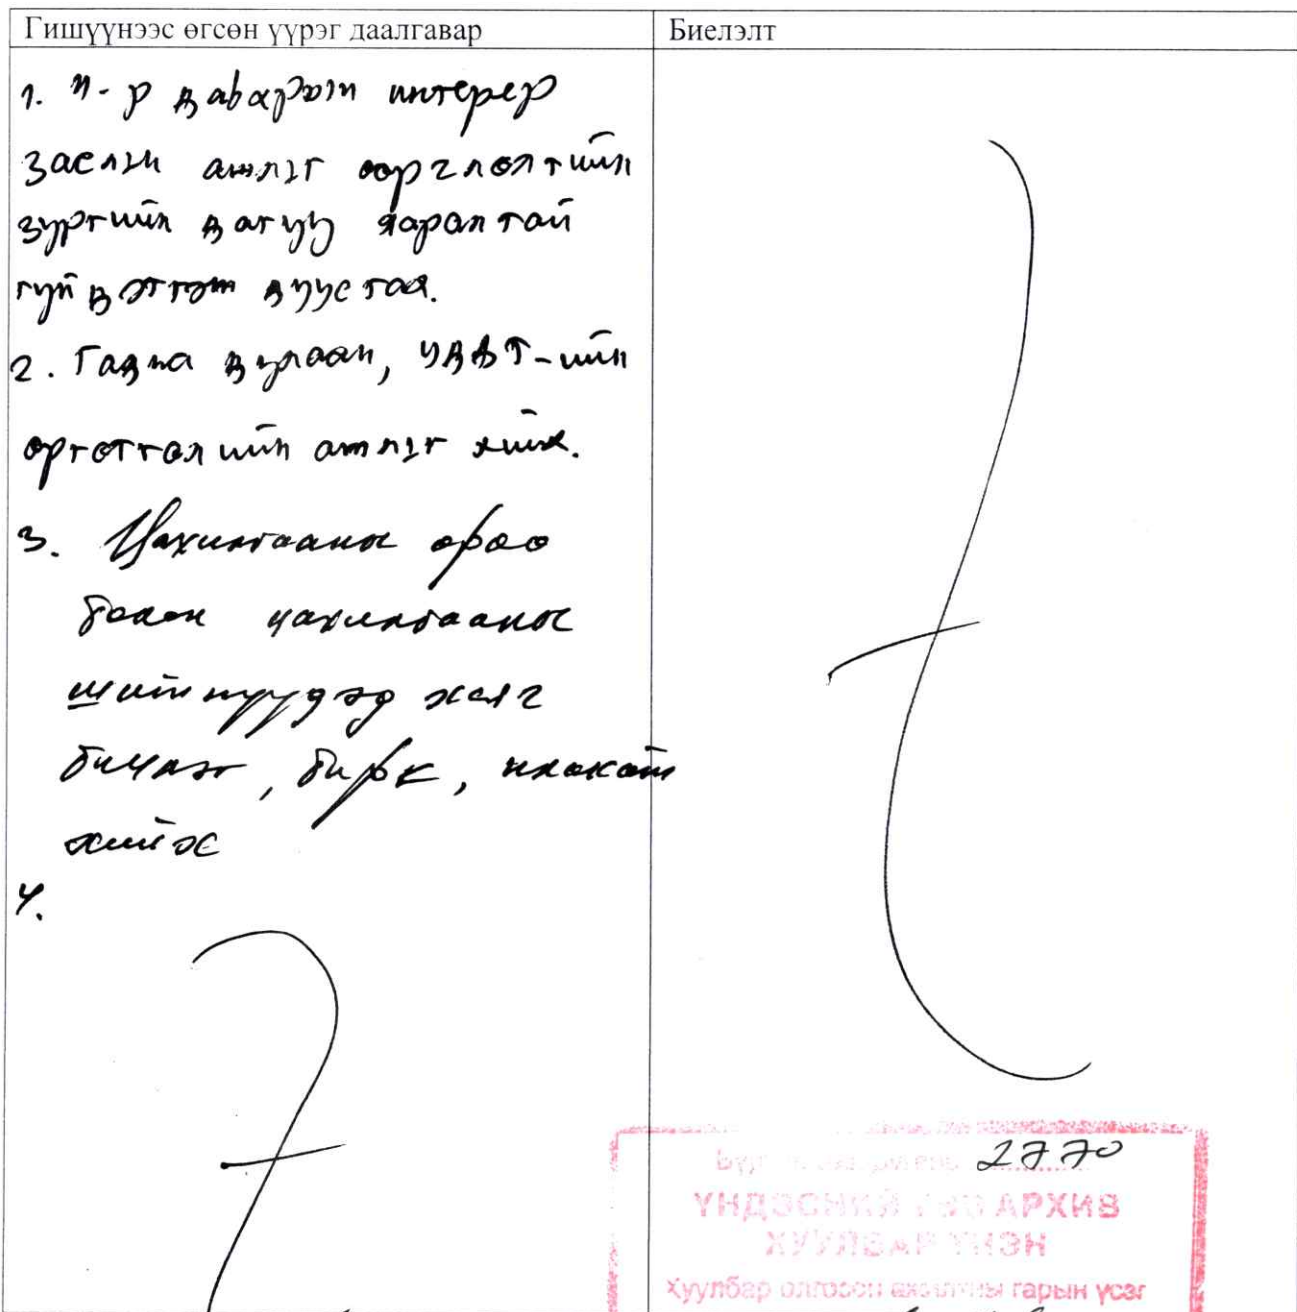 Гишүүнээс өгсөн үүрэг даалгавар
Биелэлт
1. n-р давхрын интерер
заслын ажлыг өөрчлөлтийн
зургийн дагуу яаралтай
гүйцэтгэж дуусгах.
2. Гадна дулаан,
өргөтгөлийн ажлыг хийх.
3. Цахилгааны өрөө
болон цахилгааны
шитнүүдэд хаяг
бичлэг, бирк, плакат
хийх
4.
2770
ҮНДЭСНИЙ ТӨВ АРХИВ
ХУУЛБАР ҮНЭН
Хуулбар олгосон ажилтны гарын үсэг